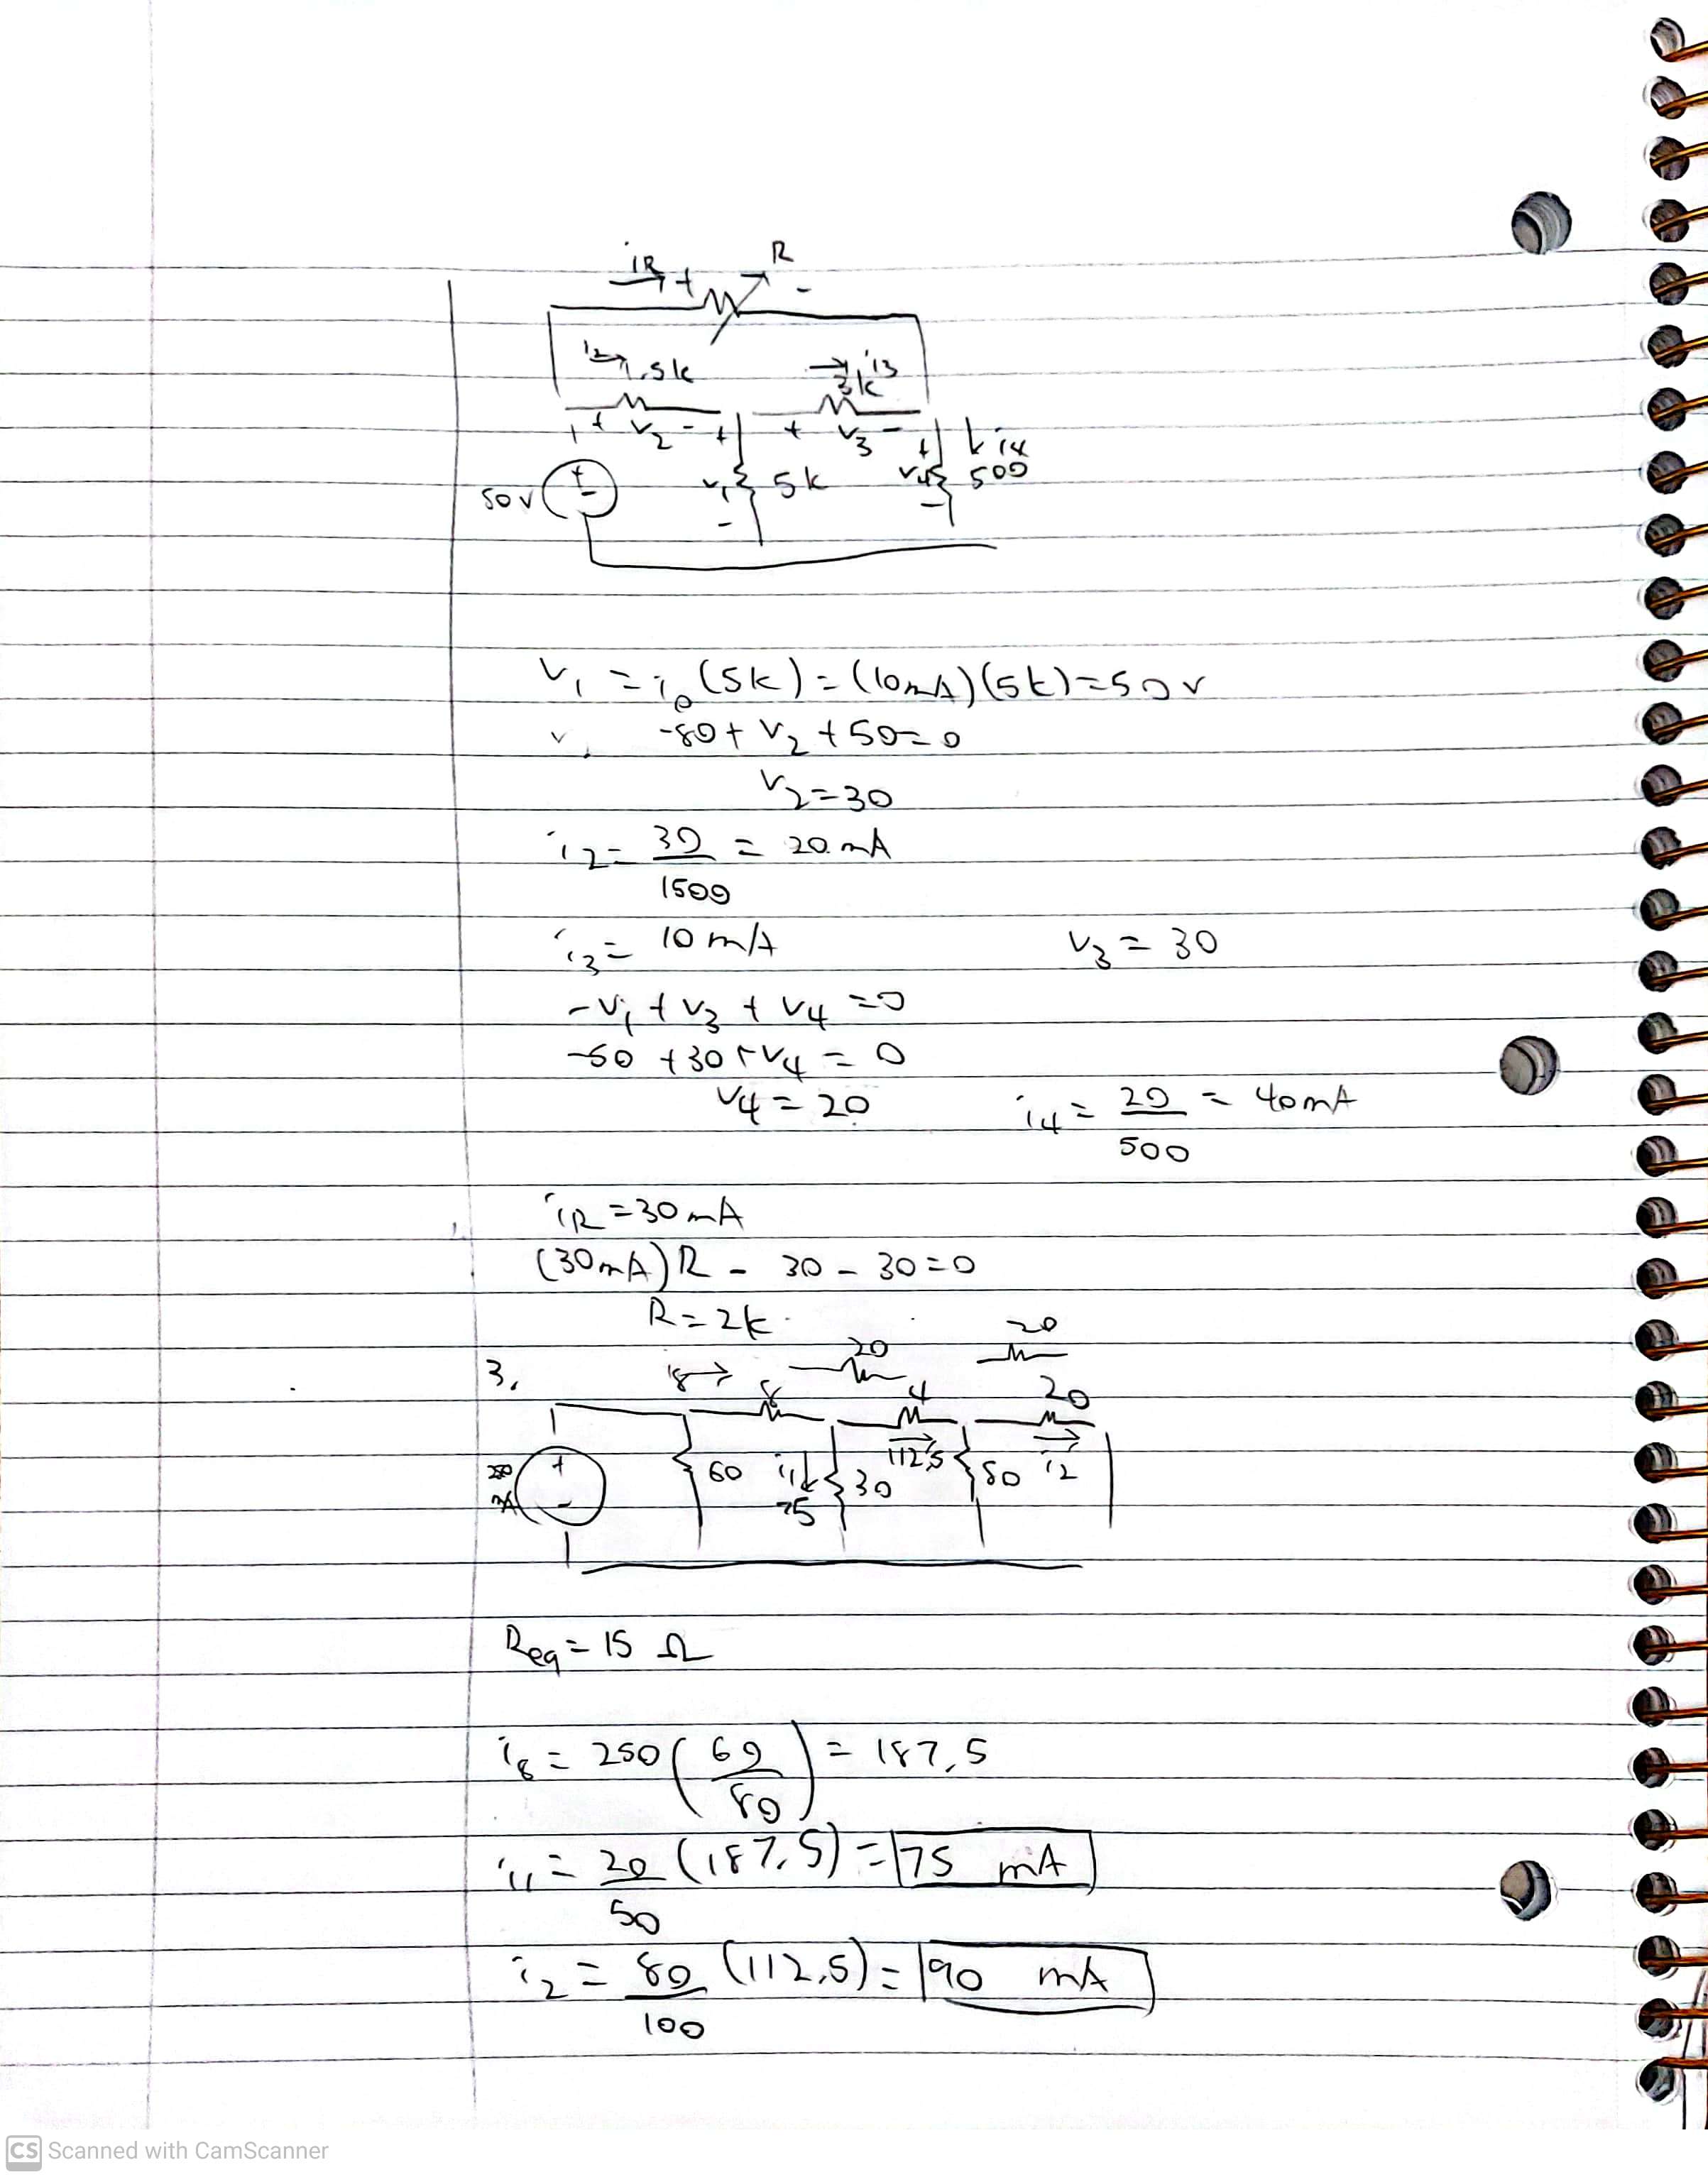 iR + R -
i2 → 1.5k → i3 3k
+ v2 - + + v3 - + ↓ i4
50v + - v1 5k v4 500
- -
v1 = i0 (5k) = (10mA)(5k) = 50 v
v, -80 + v2 + 50 = 0
v2 = 30
i2 = 30/1500 = 20 mA
i3 = 10 mA v3 = 30
-v1 + v3 + v4 = 0
-50 + 30 + v4 = 0
v4 = 20 i4 = 20/500 = 40mA
iR = 30 mA
(30mA) R - 30 - 30 = 0
R = 2k
20 20
3. i8 → 8 4 20
+ 60 i1 ↓ 30 112,5 → 80 i2 →
mA - 75
Req = 15 Ω
i8 = 250 (60/80) = 187,5
i1 = 20/50 (187,5) = 75 mA
i2 = 80/100 (112,5) = 90 mA
CS Scanned with CamScanner